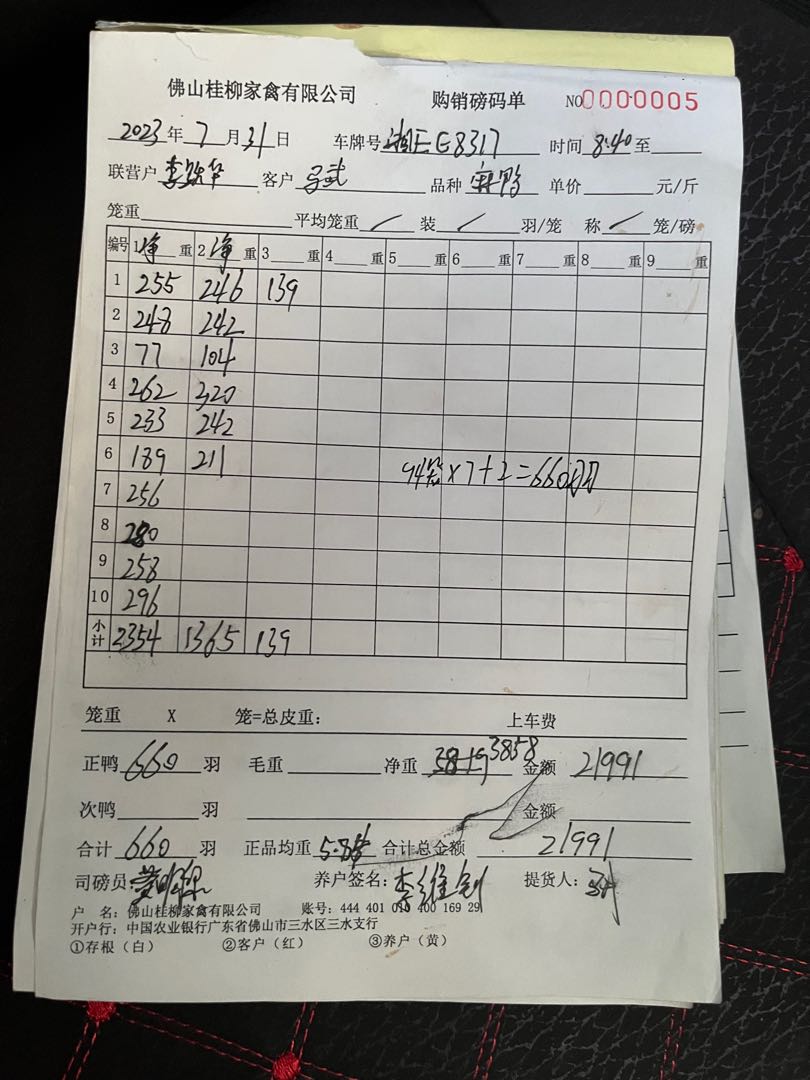 佛山桂柳家禽有限公司 购销磅码单 NO0000005
2023年7月31日 车牌号湘EE8317 时间8:40至
联营户 客户 品种麻鸭 单价 元/斤
笼重 平均笼重 / 装 / 羽/笼 称 / 笼/磅
编号 1净重 2净重 3 重 4 重 5 重 6 重 7 重 8 重 9 重
1 255 246 139
2 248 242
3 77 104
4 262 320
5 233 242
6 189 211 94笼x7+2=660羽
7 256
8 280
9 258
10 296
小计 2354 1365 139
笼重 X 笼=总皮重: 上车费
正鸭660羽 毛重 净重 3858 金额 21991
次鸭 羽 金额
合计660羽 正品均重 合计总金额 21991
司磅员: 养户签名: 李维钊 提货人:
户 名:佛山桂柳家禽有限公司 账号:444 401 010 400 169 29
开户行:中国农业银行广东省佛山市三水区三水支行
①存根(白) ②客户(红) ③养户(黄)